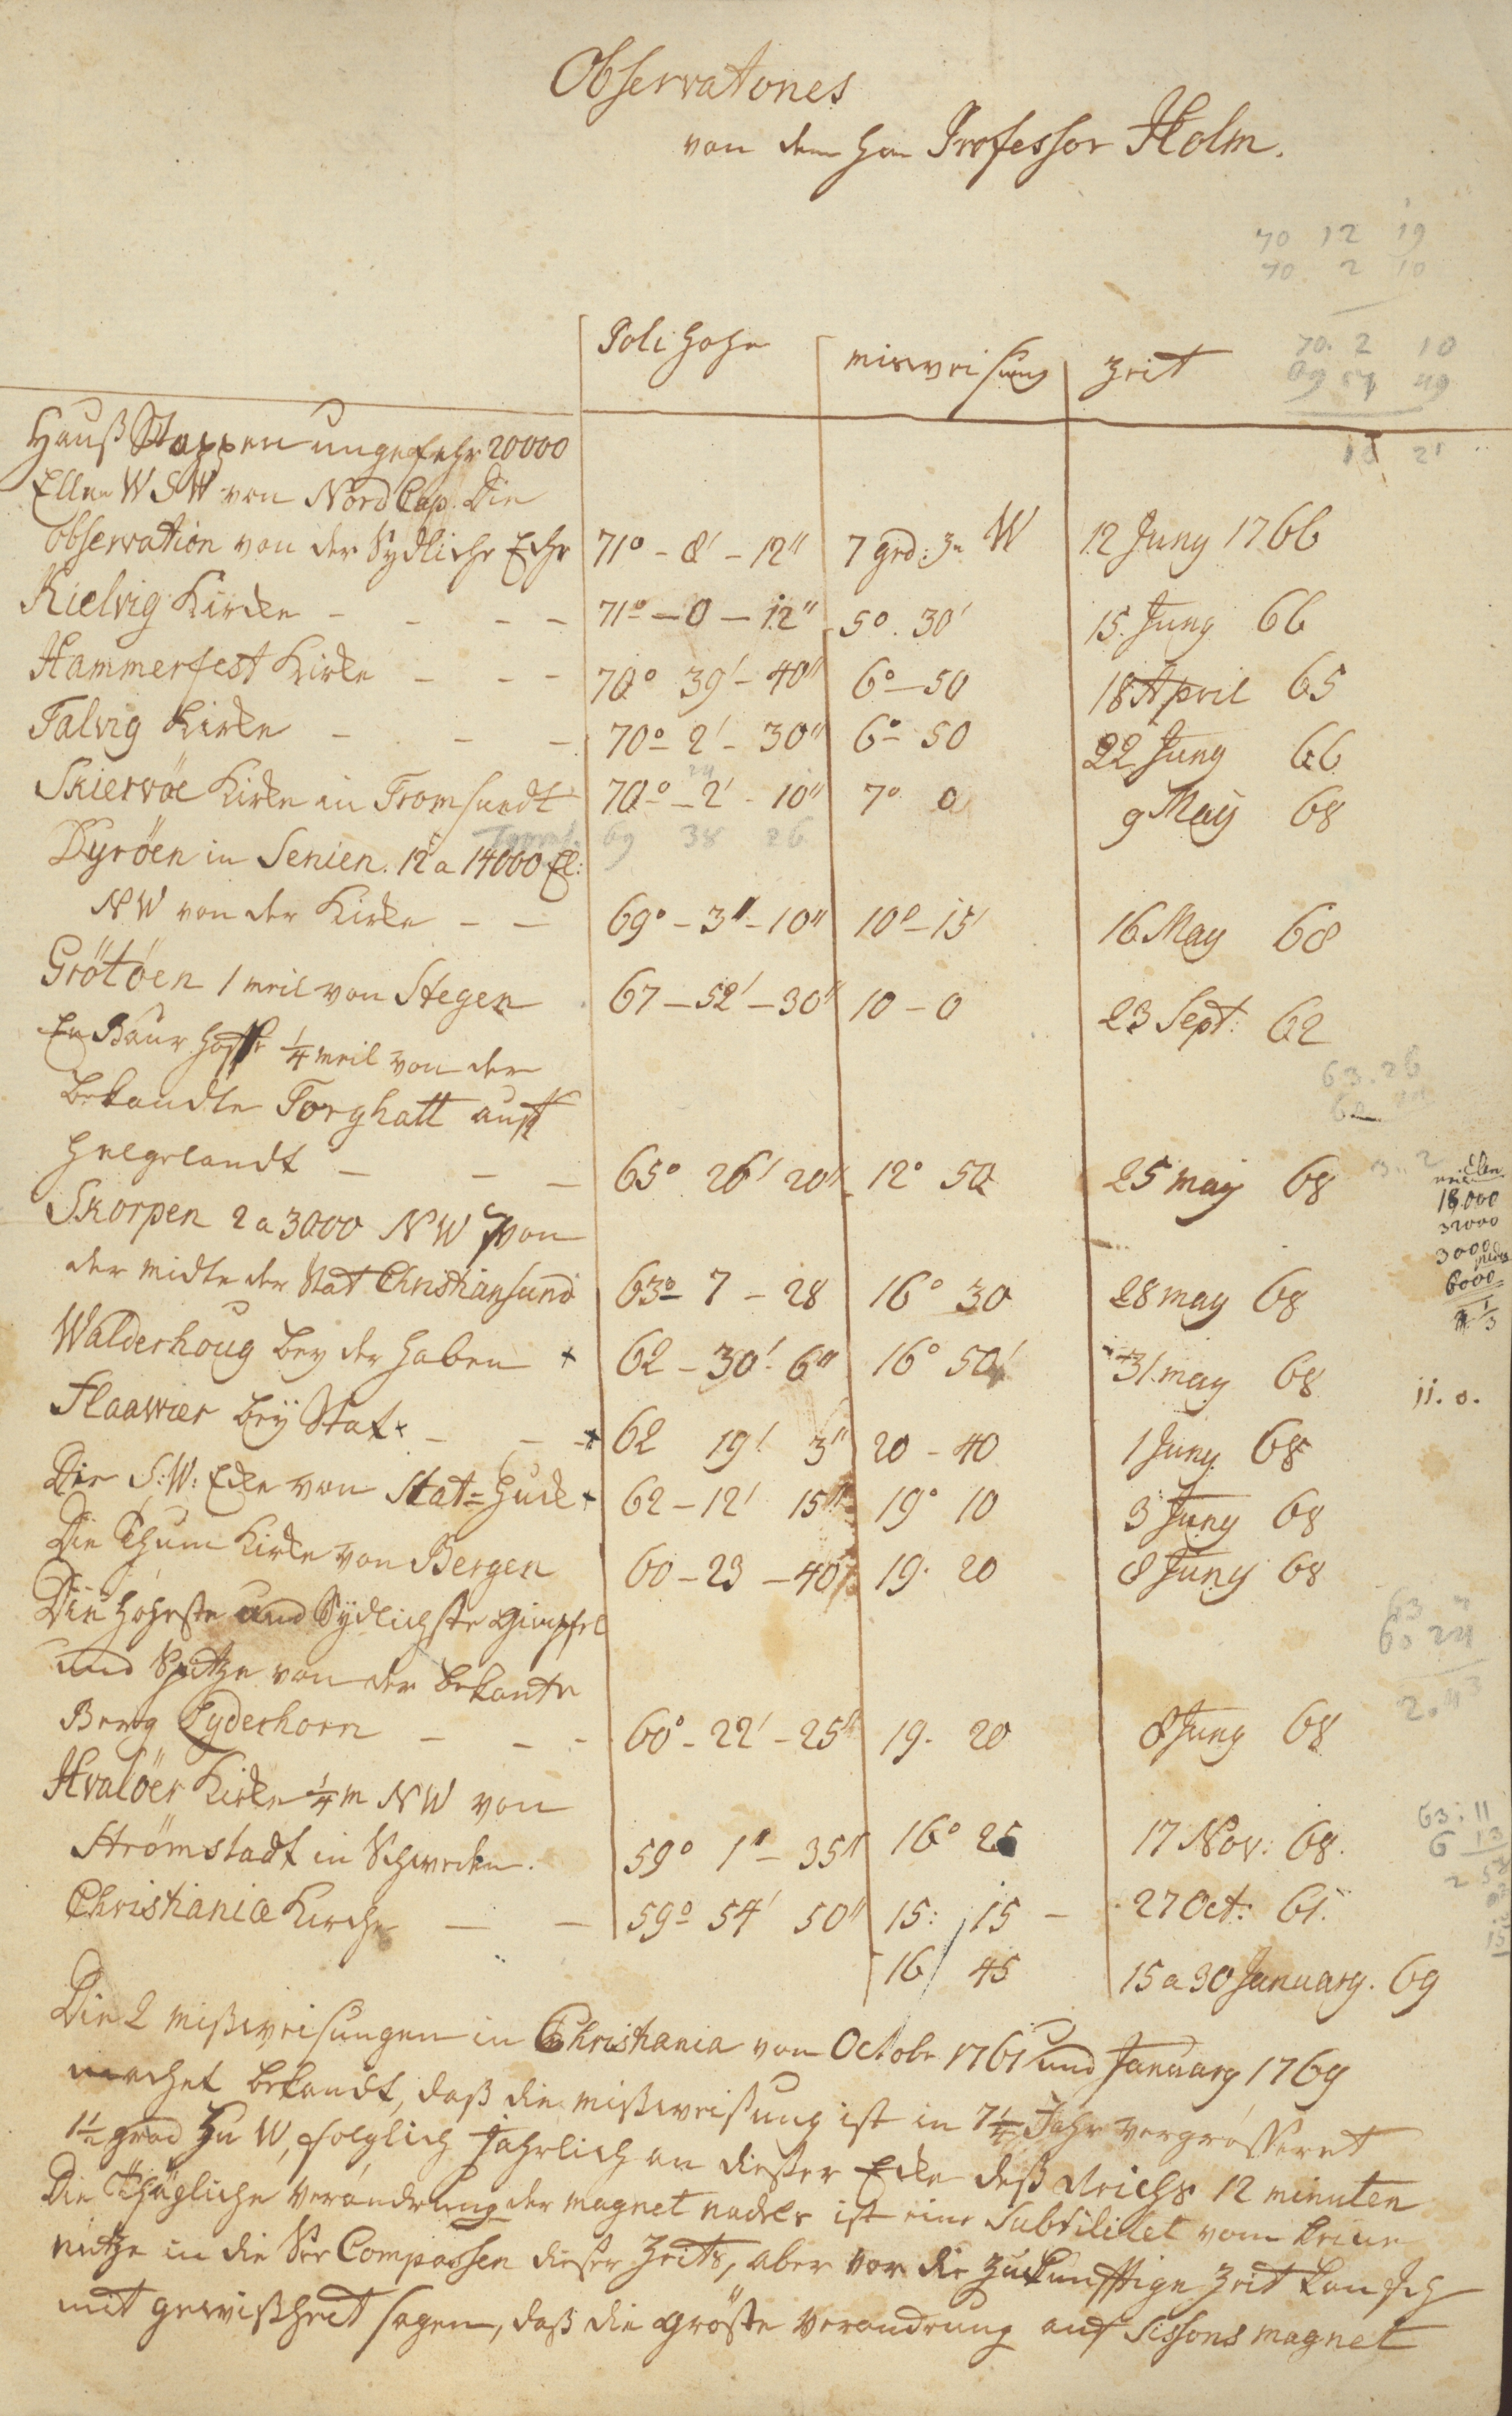 Observationes
von dem Hn Professor Holm.
70 12 19
70. 2 10
70. 2 10
69 57 49
21
Poli Hohe misweisung Zeit
Hauß Stappen ungefehr 20000
Ellen W S W von Nord Cap. Die
observation von der Sydliche Eche 71° - 8' - 12" 7 grd: W 12 Juny 1766
Kielvig Kirke - - - - 71° - 0 - 12" 5°. 30' 15. Juny 66
Hammerfest Kirke - - - 70° 39' - 40" 6° - 50 18 April 65
Talvig Kirke - - - 70° - 2' - 30" 6° - 50 22 Juny 66
Skiervöe Kirke in Tromsundt 70° - 2' - 10" 7° 0 9 Maÿ 68
69 38 26
Dyröen in Senien. 12 a 14000 El:
N W von der Kirke - - 69° - 3" - 10" 10° - 15' 16 May 68
Grötöen 1 meil von Stegen 67 - 52' - 30" 10 - 0 23 Sept: 62
En Baur 1/4 meil von der
63. 26
bekandte Torghatt auff
Helgelandt - - - 65° 26' 20" 12° 50 25 maÿ 68
18,000
32000
3000
6000
Skorpen 2 a 3000 N W von
der midte der Stat Christiansund 63° - 7 - 28 16° 30 28 may 68
Walderhoug bey der Haben + 62 - 30'. 6" 16° 50' 31. may 68
11. 0.
Flaawær beÿ Stat x - - + 62 19' 3" 20 - 40 1 Juny 68
Die S: W: Ecke von Stat = Huck + 62 - 12' 15" 19° 10 3 Juny 68
Die Thum Kirke von Bergen 60 - 23 - 40" 19. 20 8 Juny 68
Die Höheste und Sÿdlichste Gimpfel
60 24
und Spitze von der bekante
2. 43
Berg Lyderhorn - - - 60° - 22' - 25" 19. 20 8 Juny 68
Hvalöer Kirke 1/4 m N W von
63: 11
Strömstadt in Schweden. 59° 1" - 35" 16° 25 17 Nov: 68.
Christiania Kirche - - 59° 54' 50" 15: 15 - 27 Oct: 61.
16 45 15 a 30 January. 69
Die 2 mißweisungen in Christiania von Octobr 1761 und January 1769
machet bekandt, daß die mißweisung ist in 7 1/4 Jahr vergrösseret
1 1/2 grad Zu W, folglich Jährlich an diesser Ecke deß Reichs 12 minuten
Die Thägliche Verändrung der magnet nadeler ist eine Subtilitet vom keine
nutze in die See Compassen dieser Zeits, aber vor die zukunfftige Zeit kan Ich
mit gewißheit sagen, daß die größte verandrung auf Sissons magnet